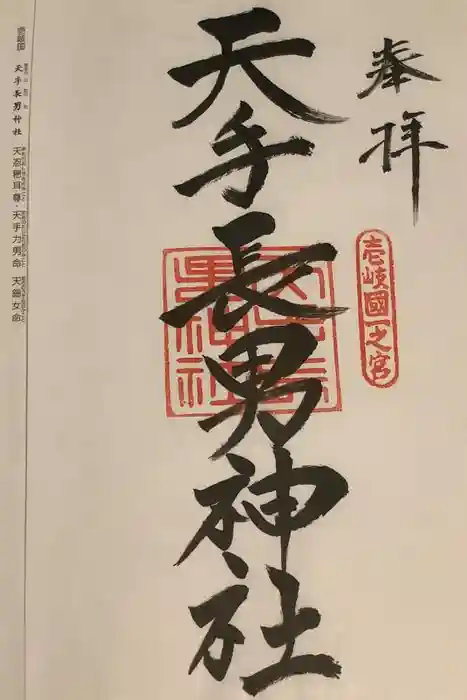 奉拝
壱岐國一之宮
天手長男神社
壱岐国
天手長男神社
天忍穂耳尊・天手力男命・天鈿女命